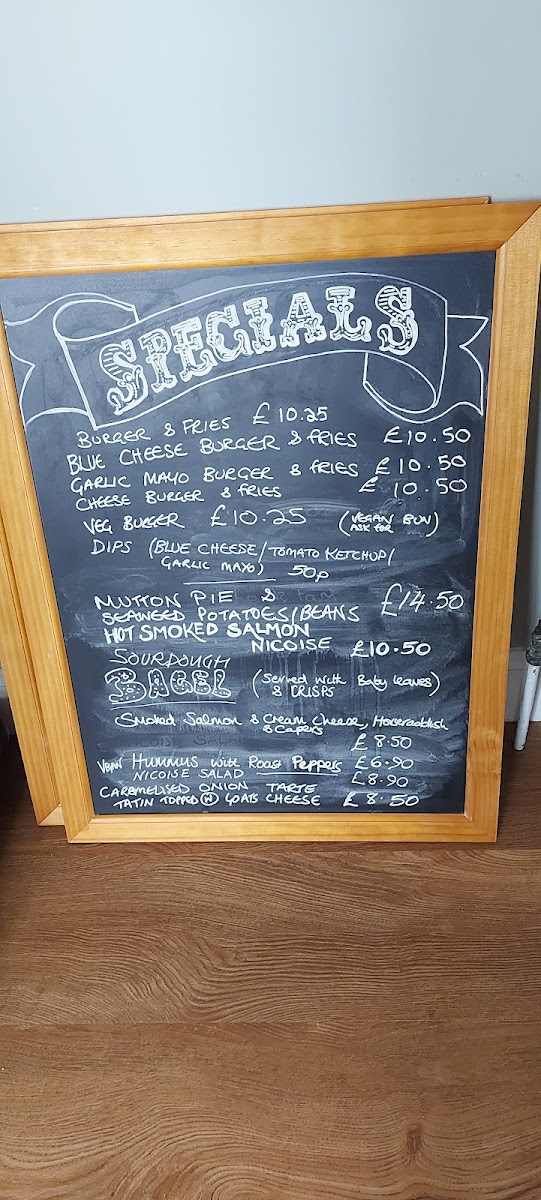 SPECIALS
BURGER & FRIES £10.25
BLUE CHEESE BURGER & FRIES £10.50
GARLIC MAYO BURGER & FRIES £10.50
CHEESE BURGER & FRIES £10.50
VEG BURGER £10.25 (VEGAN BUN
ASK FOR)
DIPS (BLUE CHEESE/TOMATO KETCHUP/
GARLIC MAYO) 50p
MUTTON PIE &
SEAWEED POTATOES/BEANS £14.50
HOT SMOKED SALMON
NICOISE £10.50
SOURDOUGH
BAGEL (Served with Baby leaves)
& CRISPS
Smoked Salmon & Cream Cheese, Horseraddish
& Capers
£8.50
VEGAN HUMMUS with Roast Peppers £6.90
NICOISE SALAD £8.90
CARAMELISED ONION TARTE
TATIN TOPPED W GOATS CHEESE £8.50